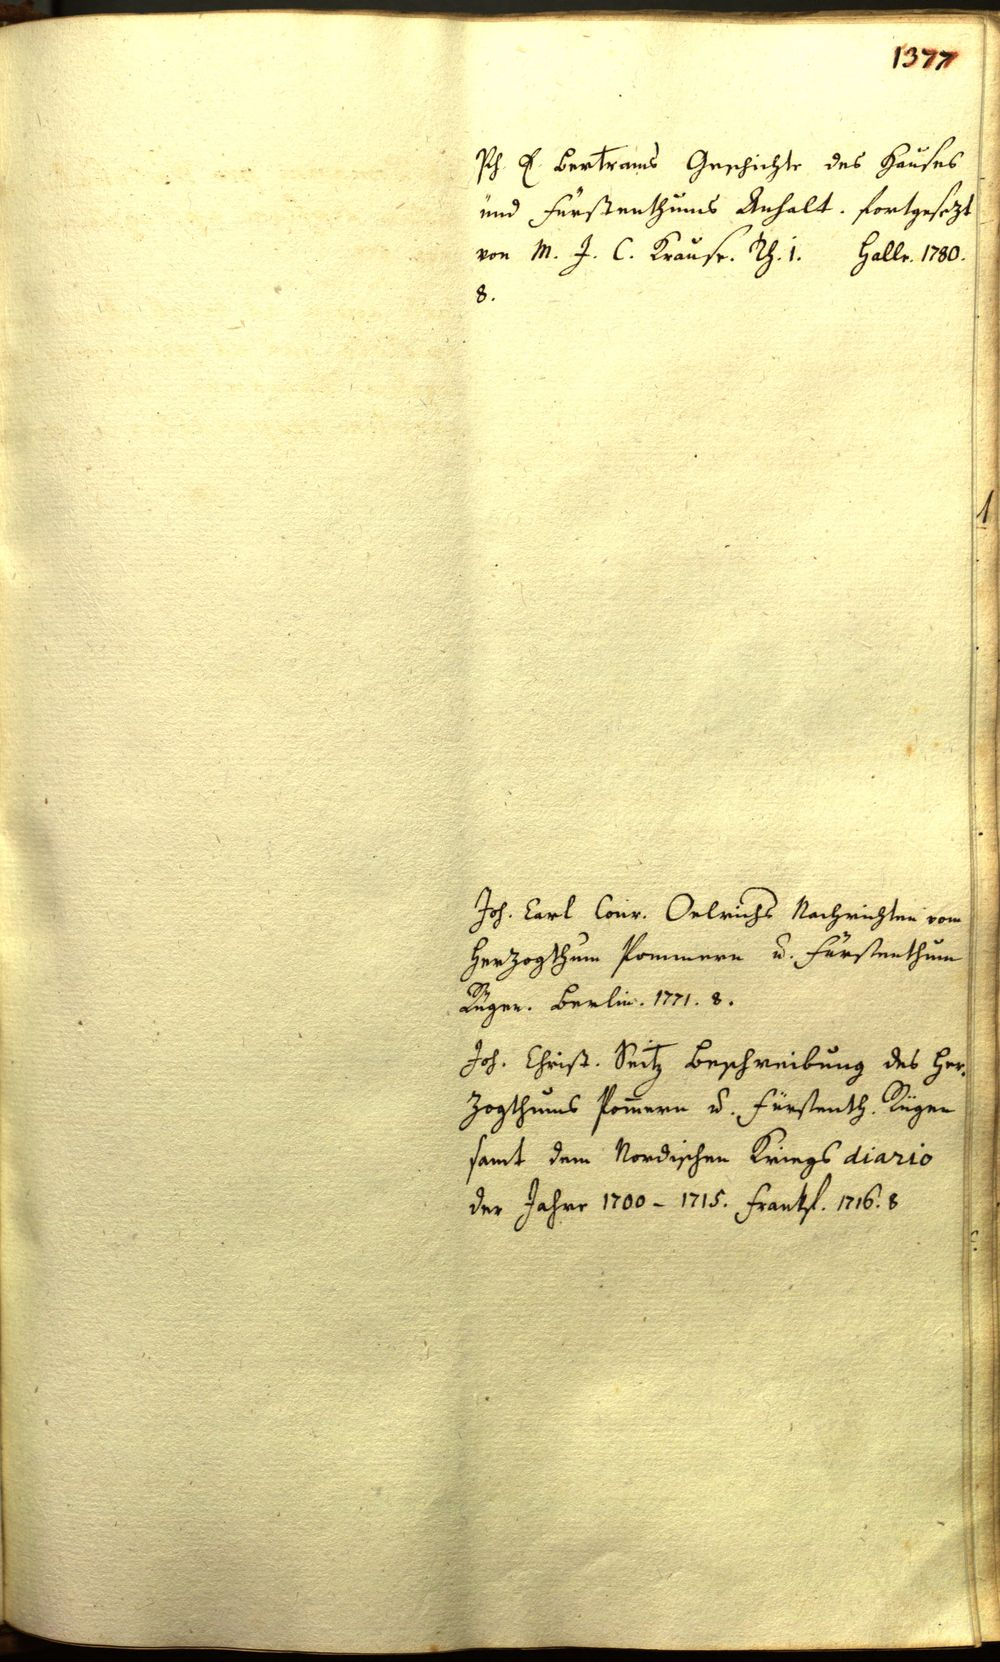 1377
Ph. E. Bertrams Geschichte des Hauses
und Fürstenthums Anhalt. fortgesezt
von M. J. C. Krause. Th. 1. Halle. 1780.
8.
Joh. Carl Conr. Oelrichs Nachrichten vom
Herzogthum Pommern u. Fürstenthum
Rügen. Berlin. 1771. 8.
Joh. Christ. Seitz Beschreibung des Her-
zogthums Pom̄ern u. Fürstenth. Rügen
samt dem Nordischen Kriegs diario
der Jahre 1700 – 1715. Frankf. 1716. 8